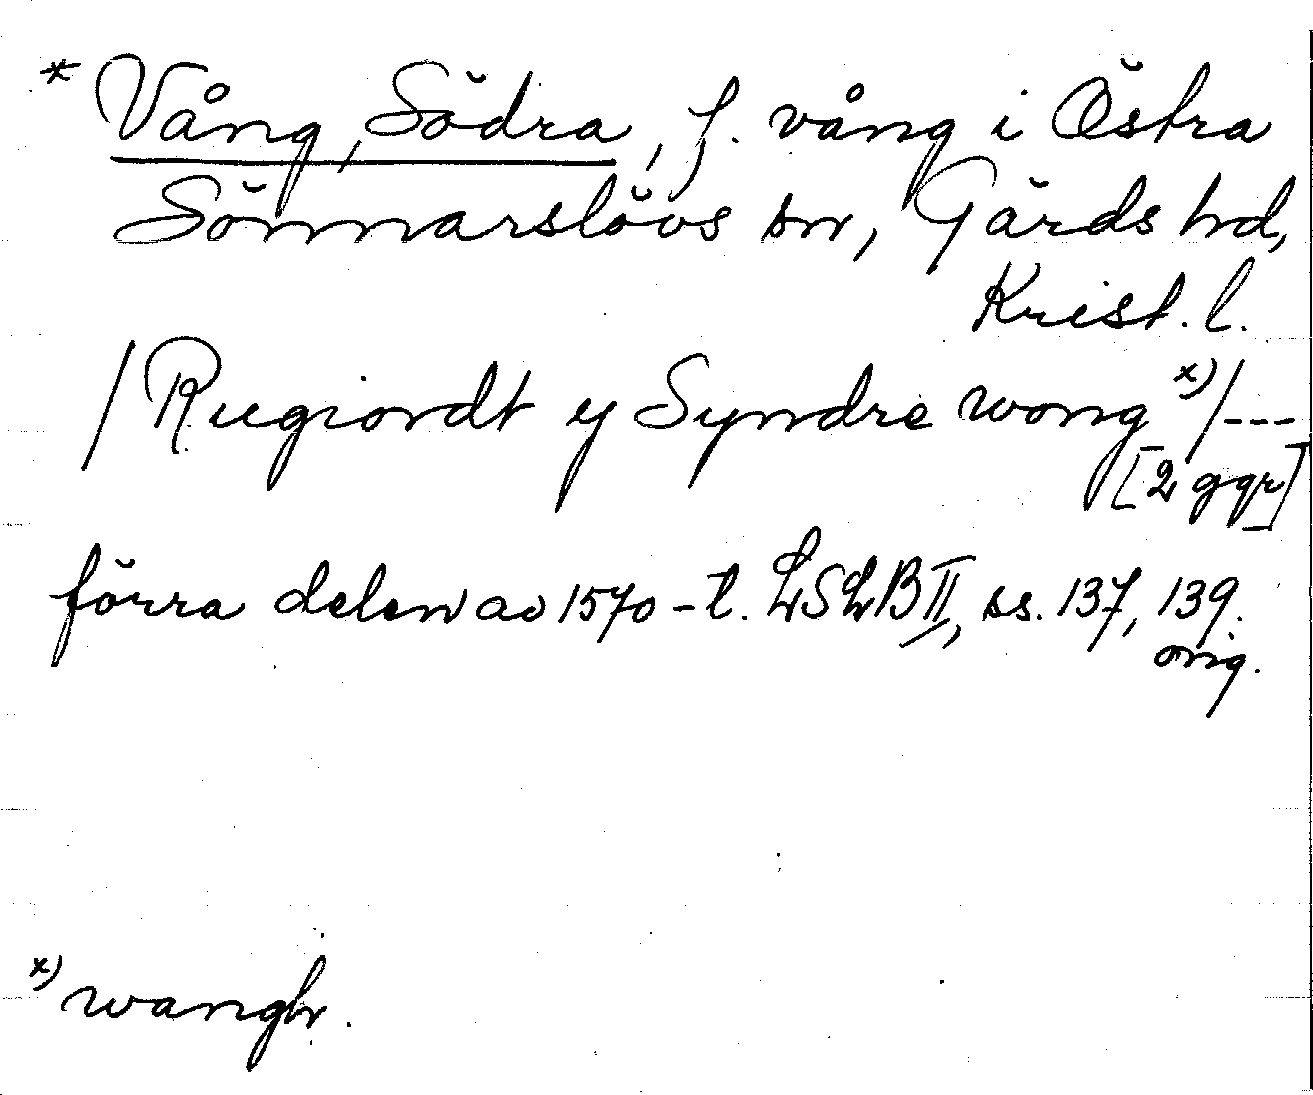 * Vång, Södra, f. vång i Östra
Sönnarslövs sn, Gärds hd,
Krist. l.
/ Rugiordt y Syndre wong x) / ---
[2 ggr]
förra delen av 1570-t. LSLB II, ss. 137, 139.
orig.
x) wangh.